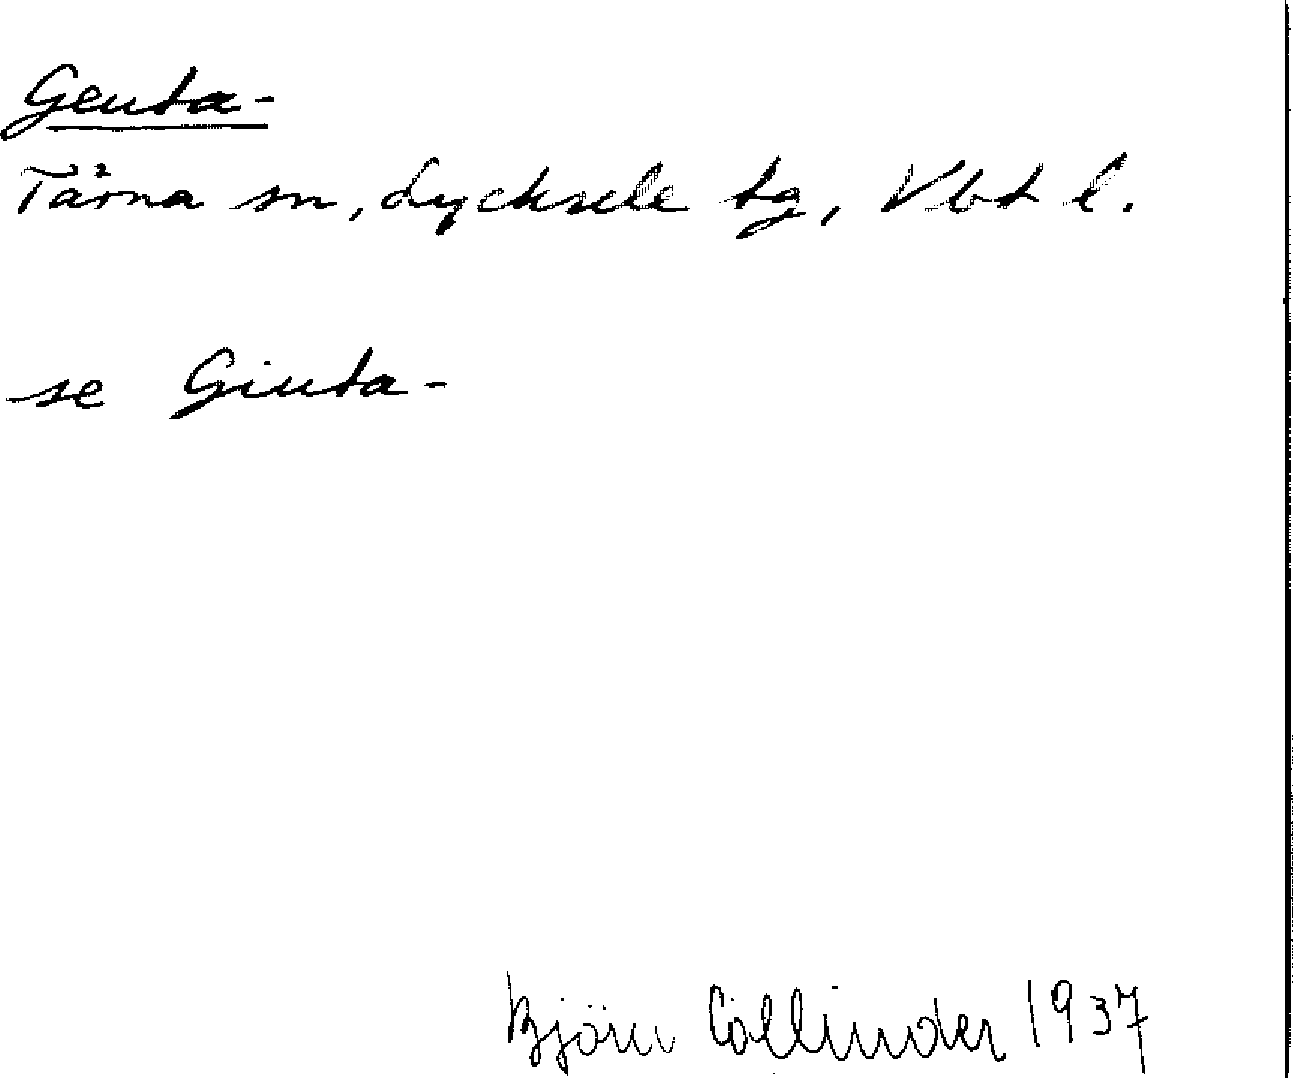 Geuta-
Tärna sn, Lycksele tg, Vbt l.
se Giuta-
Björn Collinder 1937